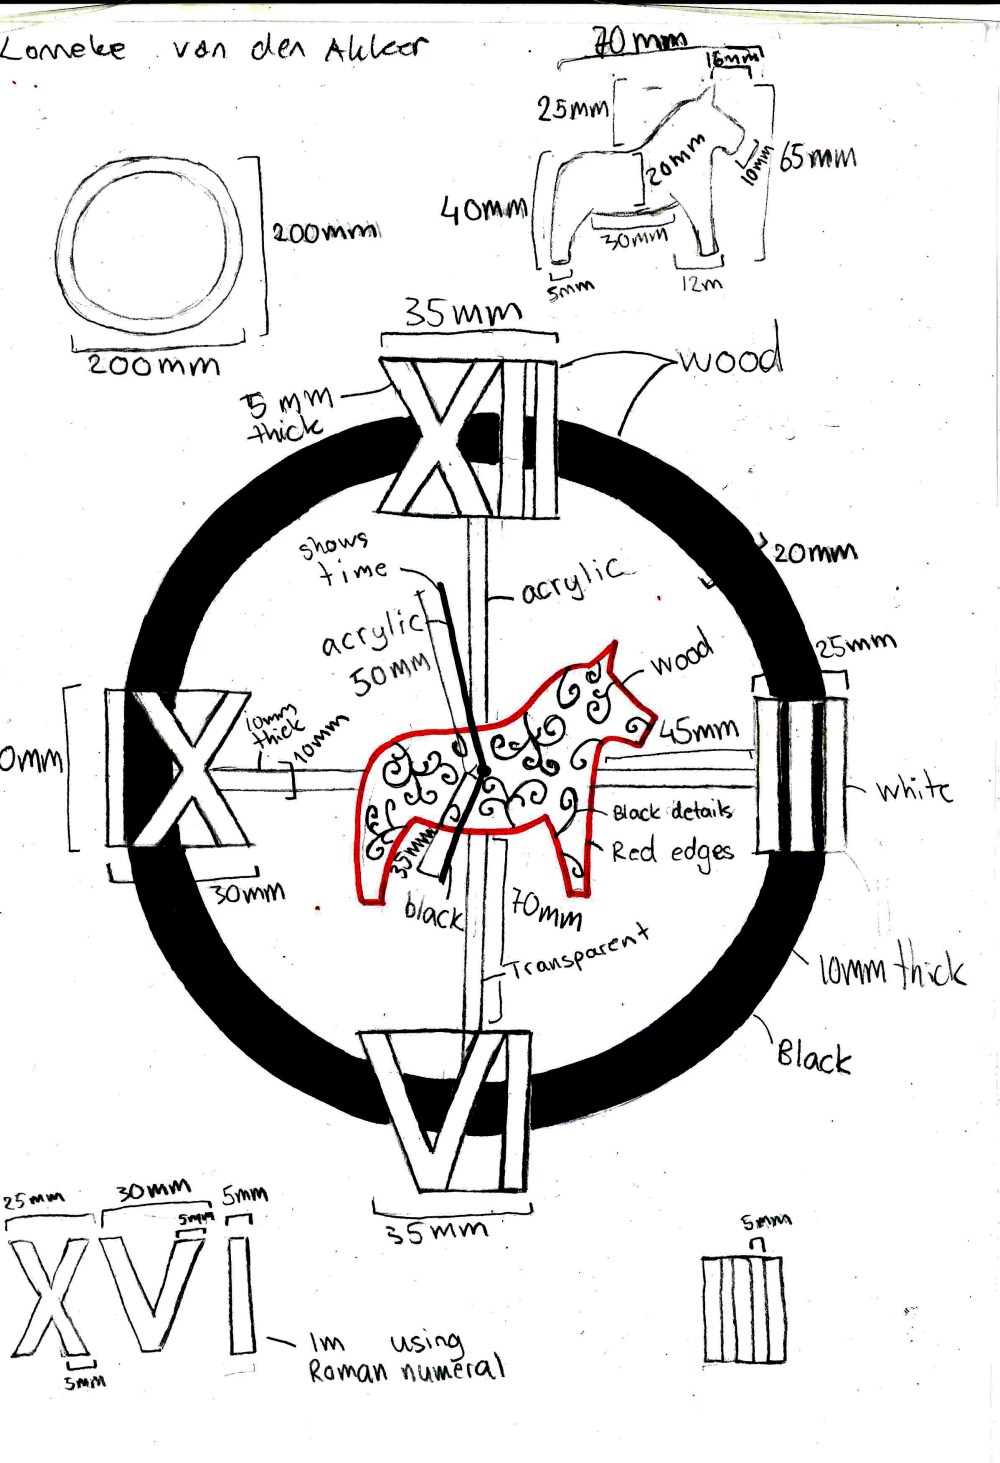 Lonneke van den Akker
70mm
15mm
25mm
20mm
10mm
65mm
40mm
30mm
5mm
12m
200mm
200mm
35mm
wood
5 mm
thick
XII
shows
time
acrylic
20mm
acrylic
50mm
25mm
wood
45mm
10mm
thick
10mm
0mm
IX
III
white
Black details
Red edges
35mm
30mm
black
70mm
Transparent
10mm thick
Black
VI
35mm
25mm
30mm
5mm
5mm
X V I
5mm
5mm
Im using
Roman numeral